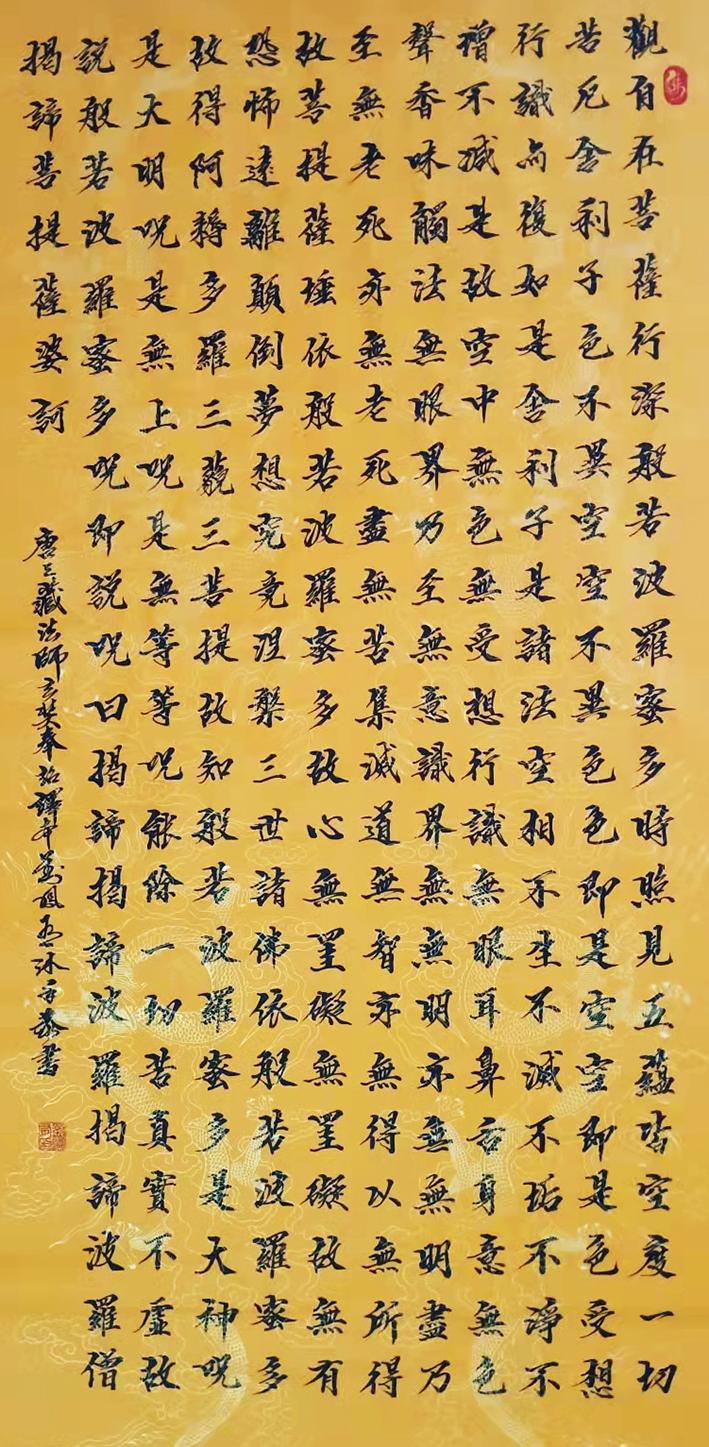 觀自在菩薩行深般若波羅蜜多時照見五蘊皆空度一切
苦厄舍利子色不異空空不異色色即是空空即是色受想
行識亦復如是舍利子是諸法空相不生不滅不垢不淨不
增不減是故空中無色無受想行識無眼耳鼻舌身意無色
聲香味觸法無眼界乃至無意識界無無明亦無無明盡乃
至無老死亦無老死盡無苦集滅道無智亦無得以無所得
故菩提薩埵依般若波羅蜜多故心無罣礙無罣礙故無有
恐怖遠離顛倒夢想究竟涅槃三世諸佛依般若波羅蜜多
故得阿耨多羅三藐三菩提故知般若波羅蜜多是大神呪
是大明呪是無上呪是無等等呪能除一切苦真實不虛故
說般若波羅蜜多呪即說呪曰揭諦揭諦波羅揭諦波羅僧
揭諦菩提薩婆訶
唐三藏法師玄奘奉詔譯書